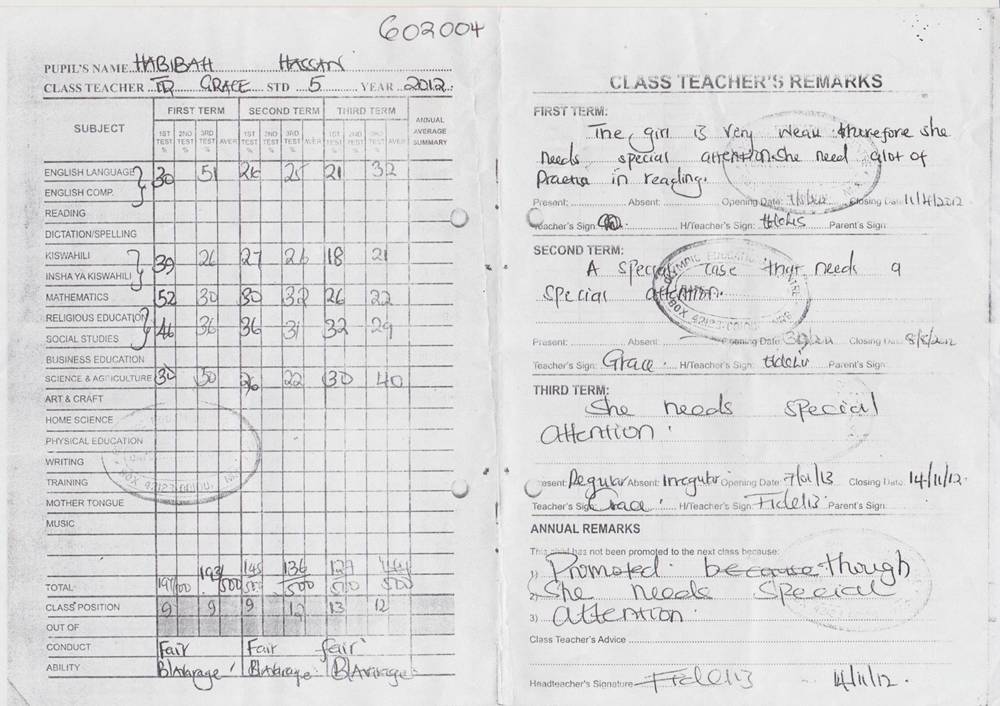 602004
PUPIL'S NAME HABIBAH HASSAN
CLASS TEACHER TR GRACE STD 5 YEAR 2012
SUBJECT FIRST TERM SECOND TERM THIRD TERM ANNUAL AVERAGE SUMMARY
1ST TEST % 2ND TEST % 3RD TEST % AVER 1ST TEST % 2ND TEST % 3RD TEST % AVER 1ST TEST % 2ND TEST % TEST % AVER
ENGLISH LANGUAGE 30 51 26 25 21 32
ENGLISH COMP.
READING
DICTATION/SPELLING
KISWAHILI 39 26 27 26 18 21
INSHA YA KISWAHILI
MATHEMATICS 52 30 30 32 26 22
RELIGIOUS EDUCATION 46 36 36 31 32 29
SOCIAL STUDIES
BUSINESS EDUCATION
SCIENCE & AGRICULTURE 30 50 26 22 30 40
ART & CRAFT
HOME SCIENCE
PHYSICAL EDUCATION
WRITING
TRAINING
MOTHER TONGUE
MUSIC
TOTAL 197 193/500 145 136/500 127 500
CLASS POSITION 9 9 9 12 13 12
OUT OF
CONDUCT Fair Fair fair
ABILITY B/Avarage B/Avarage B/Avarage
CLASS TEACHER'S REMARKS
FIRST TERM:
The girl is very weak therefore she
needs special attention. She need alot of
Practice in reading.
Present: Absent: Opening Date: Closing Date 11/4/2012
Teacher's Sign: H/Teacher's Sign: fidelis Parent's Sign
SECOND TERM:
A special case that needs a
special attention.
Present: Absent: Opening Date: Closing Date 8/8/2012
Teacher's Sign: Grace H/Teacher's Sign: fidelis Parent's Sign
THIRD TERM:
She needs special
attention.
Present: Regular Absent: Irregular Opening Date: 7/01/13 Closing Date: 14/11/12.
Teacher's Sign Grace H/Teacher's Sign: Fidelis Parent's Sign
ANNUAL REMARKS
This child has not been promoted to the next class because:
1) Promoted because though
2) She needs special
3) attention.
Class Teacher's Advice
Headteacher's Signature Fidelis 14/11/12.